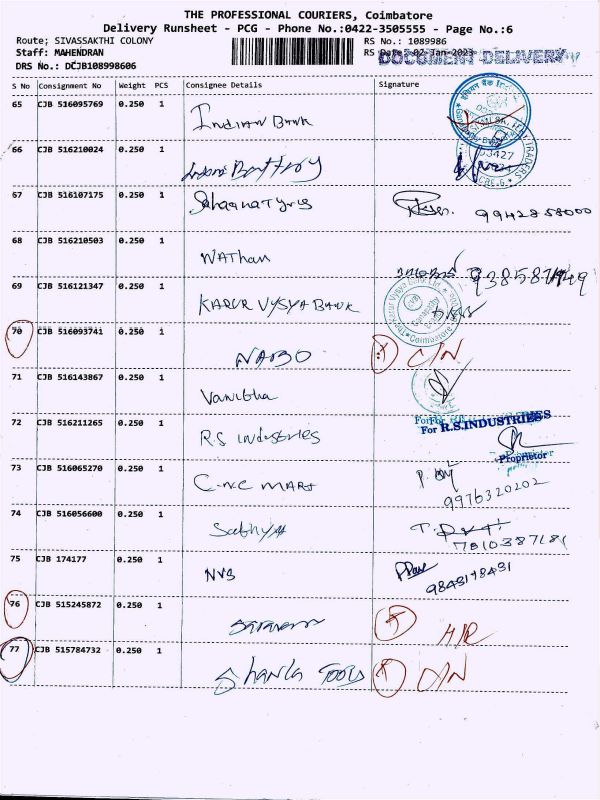 THE PROFESSIONAL COURIERS, Coimbatore
Delivery Runsheet - PCG - Phone No.:0422-3505555 - Page No.:6
Route; SIVASSAKTHI COLONY RS No.: 1089986
Staff: MAHENDRAN RS Date: 02-Jan-2023
DOCUMENT DELIVERY
DRS No.: DCJB108998606
S No Consignment No Weight PCS Consignee Details Signature
65 CJB 516095769 0.250 1 Indian Bank
66 CJB 516210024 0.250 1 Battery
67 CJB 516107175 0.250 1 Sahaana Tyres 9942858000
68 CJB 516210503 0.250 1 Nathan
69 CJB 516121347 0.250 1 KARUR VYSYA BANK
70 CJB 516093741 0.250 1 NABO C/N
71 CJB 516143867 0.250 1 Vanitha
72 CJB 516211265 0.250 1 R.S Industries For R.S.INDUSTRIES
Proprietor
73 CJB 516065270 0.250 1 C-N-C MART 9976320202
74 CJB 516056600 0.250 1 Sathya 7810387181
75 CJB 174177 0.250 1 NVS
76 CJB 515245872 0.250 1
77 CJB 515784732 0.250 1 Tools D/N